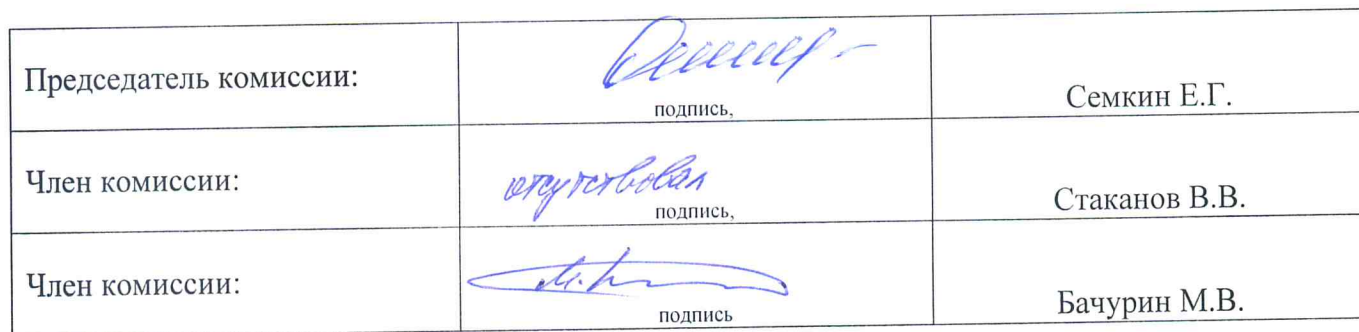 Председатель комиссии:
подпись,
Семкин Е.Г.
Член комиссии:
отсутствовал
подпись,
Стаканов В.В.
Член комиссии:
подпись
Бачурин М.В.